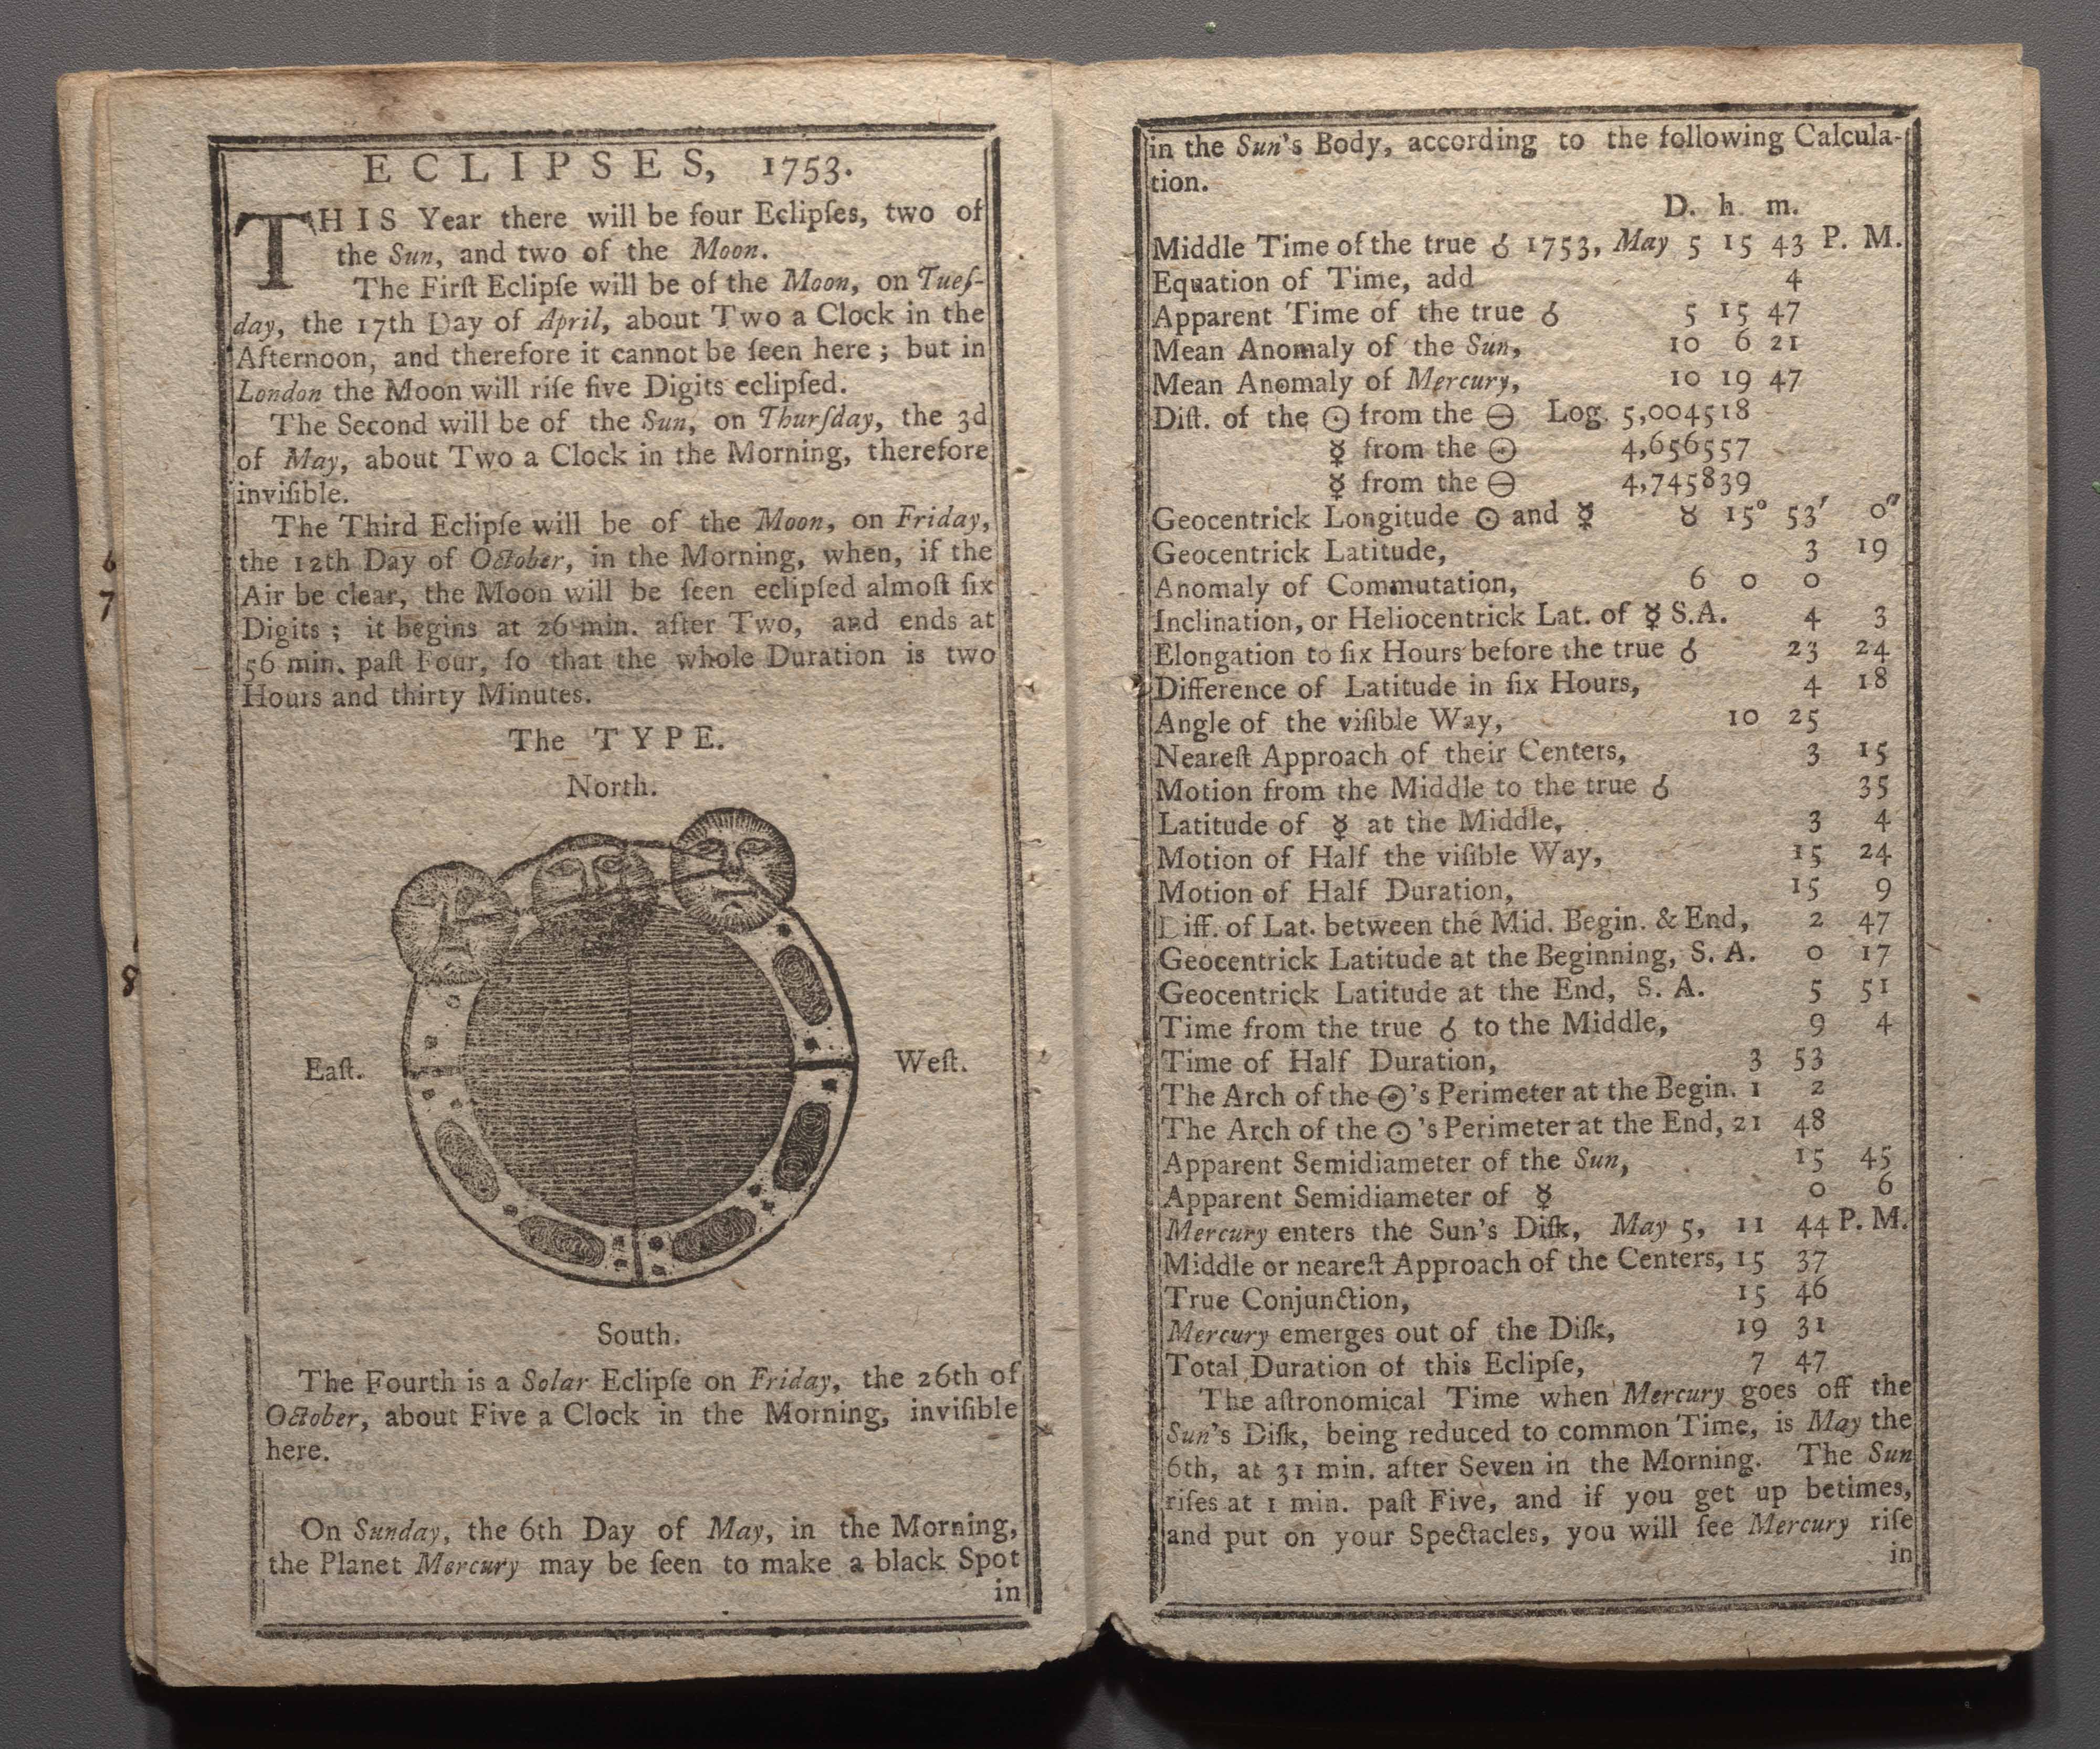 ECLIPSES, 1753.
THIS Year there will be four Eclipſes, two of
the Sun, and two of the Moon.
The Firſt Eclipſe will be of the Moon, on Tueſ-
day, the 17th Day of April, about Two a Clock in the
Afternoon, and therefore it cannot be ſeen here; but in
London the Moon will riſe five Digits eclipſed.
The Second will be of the Sun, on Thurſday, the 3d
of May, about Two a Clock in the Morning, therefore
inviſible.
The Third Eclipſe will be of the Moon, on Friday,
the 12th Day of October, in the Morning, when, if the
Air be clear, the Moon will be ſeen eclipſed almoſt ſix
Digits; it begins at 26 min. after Two, and ends at
56 min. paſt Four, ſo that the whole Duration is two
Hours and thirty Minutes.
The TYPE.
North.
East.
Weſt.
South.
The Fourth is a Solar Eclipſe on Friday, the 26th of
October, about Five a Clock in the Morning, inviſible
here.
On Sunday, the 6th Day of May, in the Morning,
the Planet Mercury may be ſeen to make a black Spot
in
6
7
8
in the Sun's Body, according to the following Calcula-
tion.
D. h. m.
Middle Time of the true ☌ 1753, May 5 15 43 P. M.
Equation of Time, add 4
Apparent Time of the true ☌ 5 15 47
Mean Anomaly of the Sun, 10 6 21
Mean Anomaly of Mercury, 10 19 47
Diſt. of the ☉ from the ⊖ Log. 5,004518
☿ from the ☉ 4,656557
☿ from the ⊖ 4,745839
Geocentrick Longitude ☉ and ☿ ♉ 15° 53′ 0″
Geocentrick Latitude, 3 19
Anomaly of Commutation, 6 0 0
Inclination, or Heliocentrick Lat. of ☿ S.A. 4 3
Elongation to ſix Hours before the true ☌ 23 24
Difference of Latitude in ſix Hours, 4 18
Angle of the viſible Way, 10 25
Neareſt Approach of their Centers, 3 15
Motion from the Middle to the true ☌ 35
Latitude of ☿ at the Middle, 3 4
Motion of Half the viſible Way, 15 24
Motion of Half Duration, 15 9
Diff. of Lat. between the Mid. Begin. & End, 2 47
Geocentrick Latitude at the Beginning, S. A. 0 17
Geocentrick Latitude at the End, S. A. 5 51
Time from the true ☌ to the Middle, 9 4
Time of Half Duration, 3 53
The Arch of the ☉'s Perimeter at the Begin. 1 2
The Arch of the ☉'s Perimeter at the End, 21 48
Apparent Semidiameter of the Sun, 15 45
Apparent Semidiameter of ☿ 0 6
Mercury enters the Sun's Diſk, May 5, 11 44 P. M.
Middle or neareſt Approach of the Centers, 15 37
True Conjunction, 15 46
Mercury emerges out of the Diſk, 19 31
Total Duration of this Eclipſe, 7 47
The aſtronomical Time when Mercury goes off the
Sun's Diſk, being reduced to common Time, is May the
6th, at 31 min. after Seven in the Morning. The Sun
riſes at 1 min. paſt Five, and if you get up betimes,
and put on your Spectacles, you will ſee Mercury riſe
in